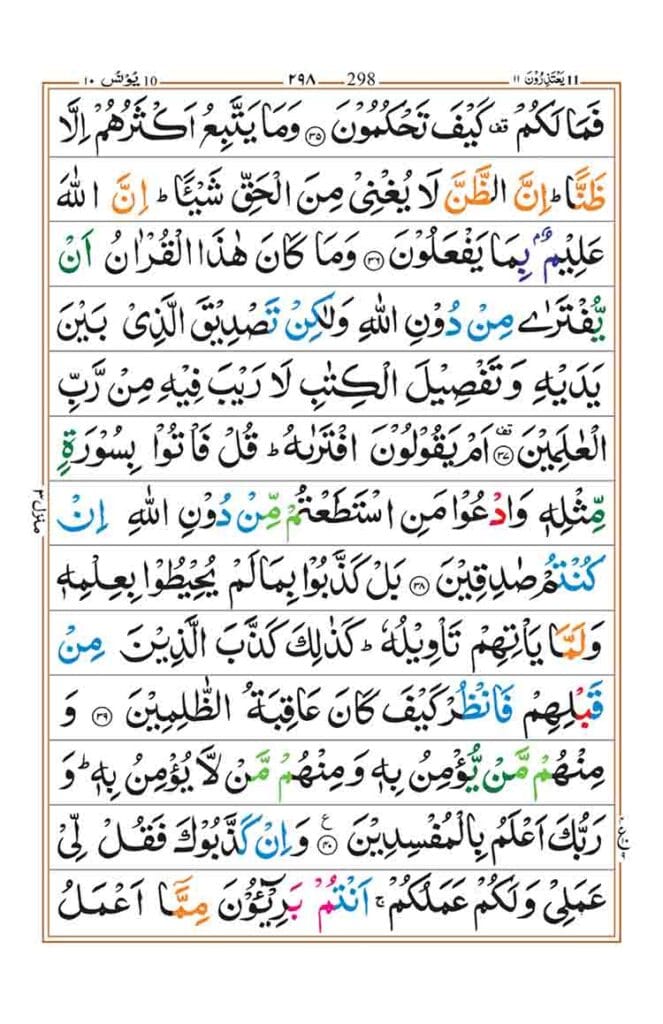 يَعْتَذِرُوْنَ ١١ 11 298 ٢٩٨ 10 يُوْنُس ١٠
فَمَا لَكُمْ قف كَيْفَ تَحْكُمُوْنَ ۝٣٥ وَمَا يَتَّبِعُ اَكْثَرُهُمْ اِلَّا
ظَنًّا ؕ اِنَّ الظَّنَّ لَا يُغْنِىْ مِنَ الْحَقِّ شَيْـًٔا ؕ اِنَّ اللّٰهَ
عَلِيْمٌۢ بِمَا يَفْعَلُوْنَ ۝٣٦ وَمَا كَانَ هٰذَا الْقُرْاٰنُ اَنْ
يُّفْتَرٰى مِنْ دُوْنِ اللّٰهِ وَلٰكِنْ تَصْدِيْقَ الَّذِىْ بَيْنَ
يَدَيْهِ وَتَفْصِيْلَ الْكِتٰبِ لَا رَيْبَ فِيْهِ مِنْ رَّبِّ
الْعٰلَمِيْنَ ۝٣٧ قف اَمْ يَقُوْلُوْنَ افْتَرٰىهُ ؕ قُلْ فَاْتُوْا بِسُوْرَةٍ
مِّثْلِهٖ وَادْعُوْا مَنِ اسْتَطَعْتُمْ مِّنْ دُوْنِ اللّٰهِ اِنْ
كُنْتُمْ صٰدِقِيْنَ ۝٣٨ بَلْ كَذَّبُوْا بِمَا لَمْ يُحِيْطُوْا بِعِلْمِهٖ
وَلَمَّا يَاْتِهِمْ تَاْوِيْلُهٗ ؕ كَذٰلِكَ كَذَّبَ الَّذِيْنَ مِنْ
قَبْلِهِمْ فَانْظُرْ كَيْفَ كَانَ عَاقِبَةُ الظّٰلِمِيْنَ ۝٣٩ وَ
مِنْهُمْ مَّنْ يُّؤْمِنُ بِهٖ وَمِنْهُمْ مَّنْ لَّا يُؤْمِنُ بِهٖ ؕ وَ
رَبُّكَ اَعْلَمُ بِالْمُفْسِدِيْنَ ۝٤٠ ع وَاِنْ كَذَّبُوْكَ فَقُلْ لِّىْ
عَمَلِىْ وَلَكُمْ عَمَلُكُمْ ۚ اَنْتُمْ بَرِيْٓـُٔوْنَ مِمَّاۤ اَعْمَلُ
منزل ٣